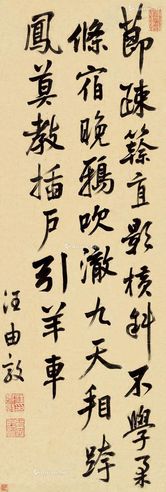 節疎簳直影橫斜不學柔
條宿晚鴉吹澈九天相跨
鳳莫教插戶引羊車
汪由敦